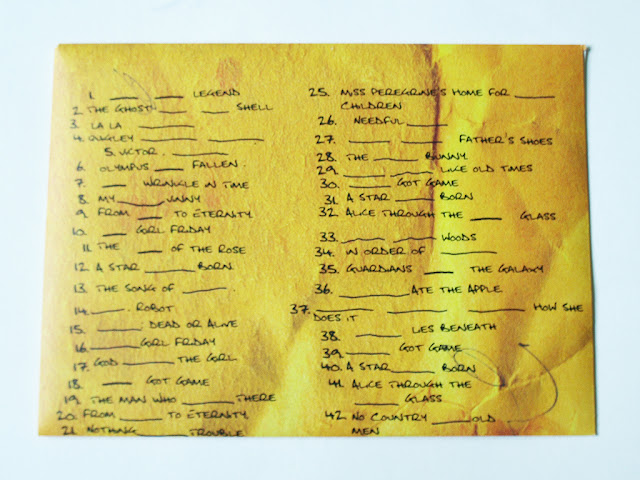 1. ___ ___ LEGEND
2. THE GHOST ___ ___ SHELL
3. LA LA ___
4. QUIGLEY ___ ___
5. VICTOR. ___
6. OLYMPUS ___ FALLEN.
7. ___ WRINKLE IN TIME
8. MY ___ VINNY
9. FROM ___ TO ETERNITY.
10. ___ GIRL FRIDAY
11. THE ___ OF THE ROSE
12. A STAR ___ BORN
13. THE SONG OF ___.
14. ___. ROBOT
15. ___: DEAD OR ALIVE
16. ___ GIRL FRIDAY
17. GOD ___ THE GIRL
18. ___ GOT GAME
19. THE MAN WHO ___ THERE
20. FROM ___ TO ETERNITY.
21. NOTHING ___ TROUBLE
25. MISS PEREGRINE'S HOME FOR ___
CHILDREN
26. NEEDFUL ___
27. ___ ___ FATHER'S SHOES
28. THE ___ BUNNY.
29. ___ ___ LIKE OLD TIMES
30. ___ GOT GAME
31. A STAR ___ BORN
32. ALICE THROUGH THE ___ GLASS
33. ___ ___ WOODS
34. IN ORDER OF ___
35. GUARDIANS ___ THE GALAXY
36. ___ ATE THE APPLE
37. ___ ___ ___ HOW SHE
DOES IT
38. ___ LES BENEATH
39. ___ GOT GAME
40. A STAR ___ BORN
41. ALICE THROUGH THE
___ GLASS
42. NO COUNTRY ___ OLD
MEN